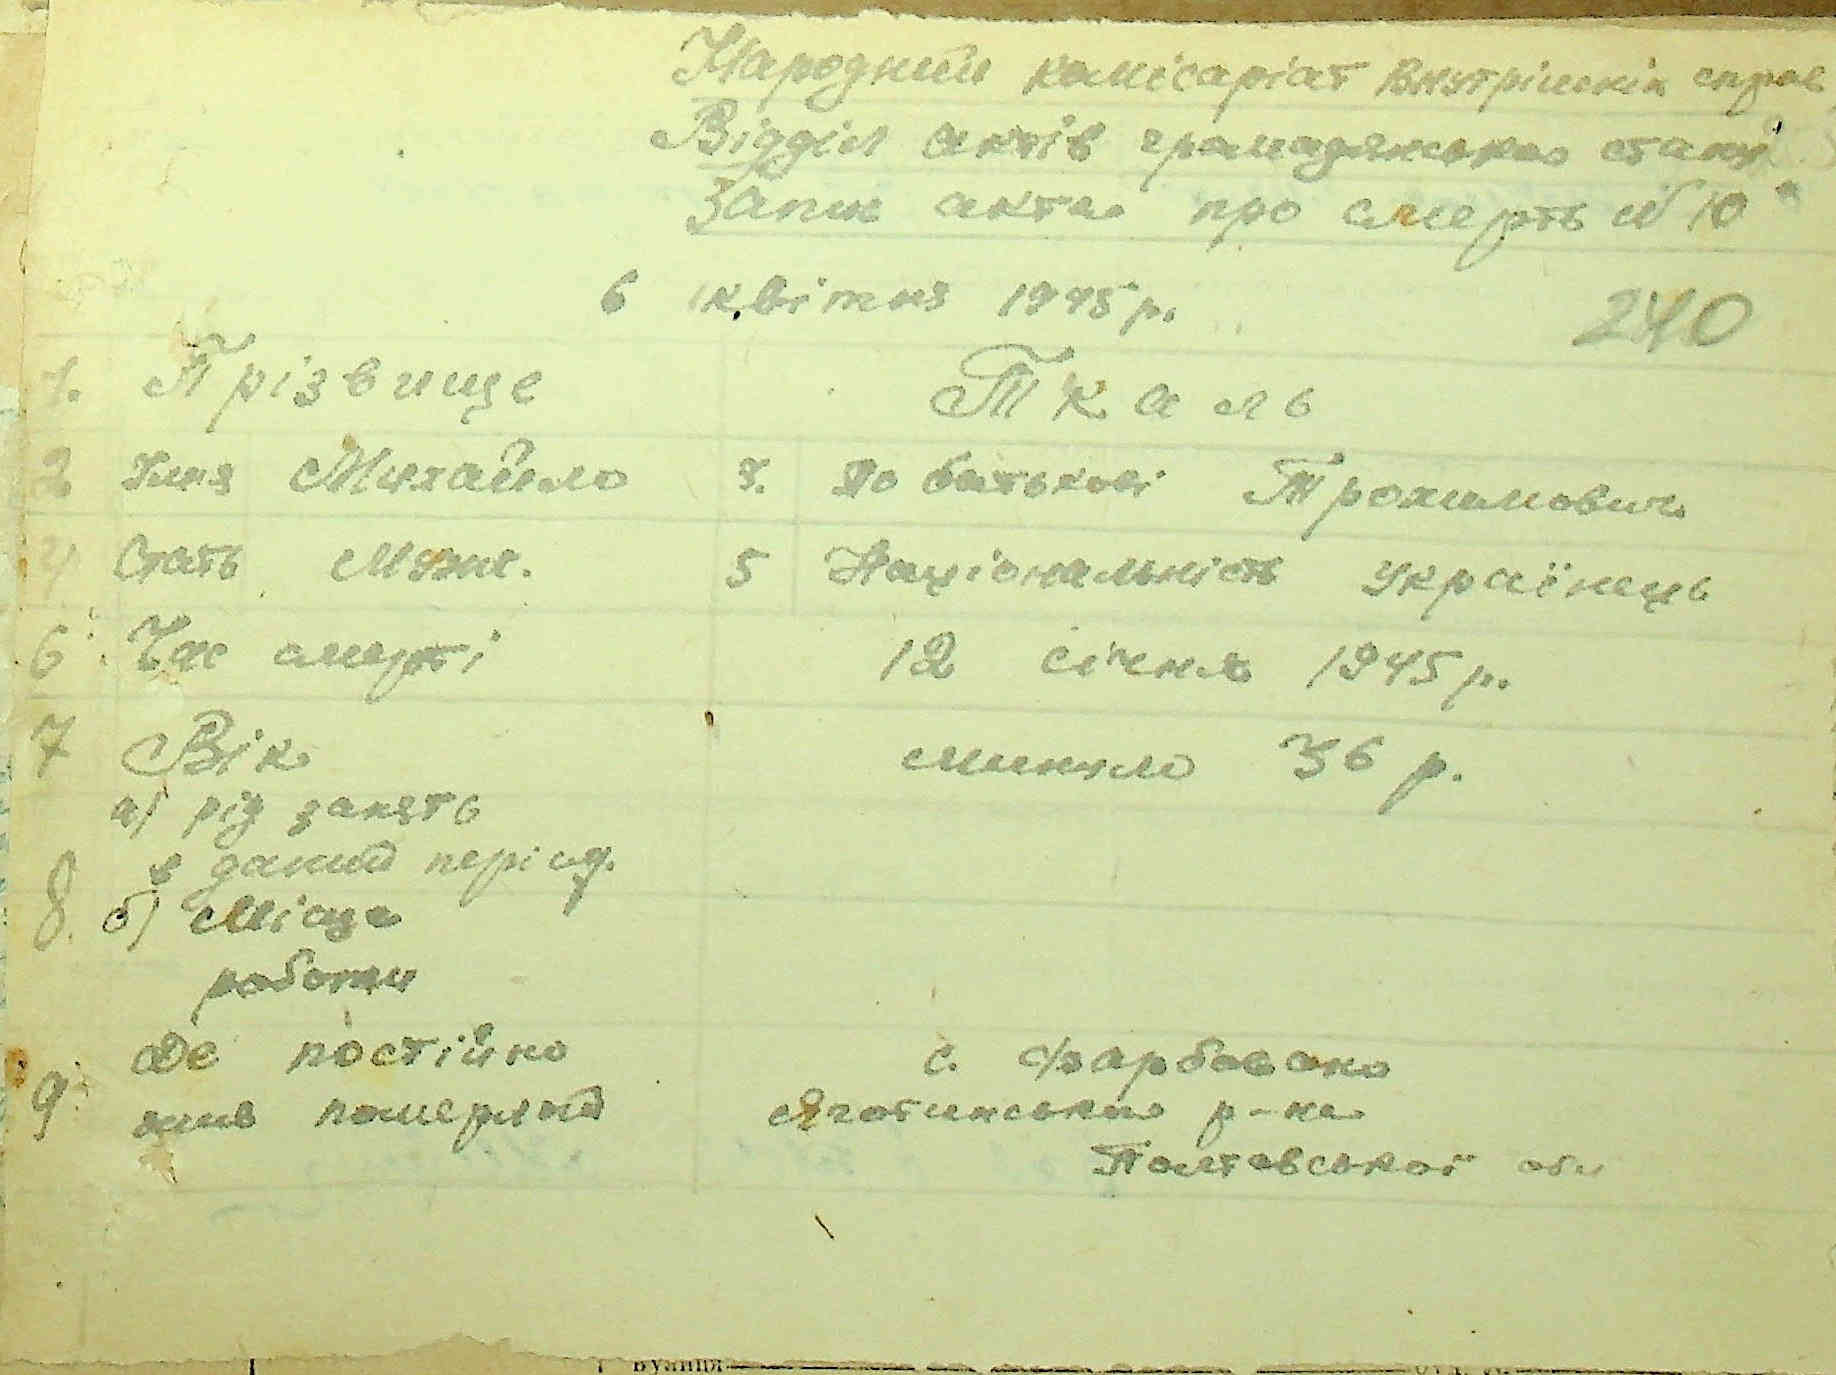 Народний комісаріат внутрішніх справ
Відділ актів громадянського стану
Запис акта про смерть № 10
6 квітня 1945 р.
240
1. Прізвище Ткаль
2 Імя Михайло 3. По батькові Трохимович
4 Стать Мужс. 5 Національність Українець
6 Час смерті 12 січня 1945 р.
7 Вік минуло 36 р.
а) рід занять
в даний період.
8. б) Місце
роботи
Де постійно с. Фарбовано
9. жив померлий Яготинського р-на
Полтавської обл